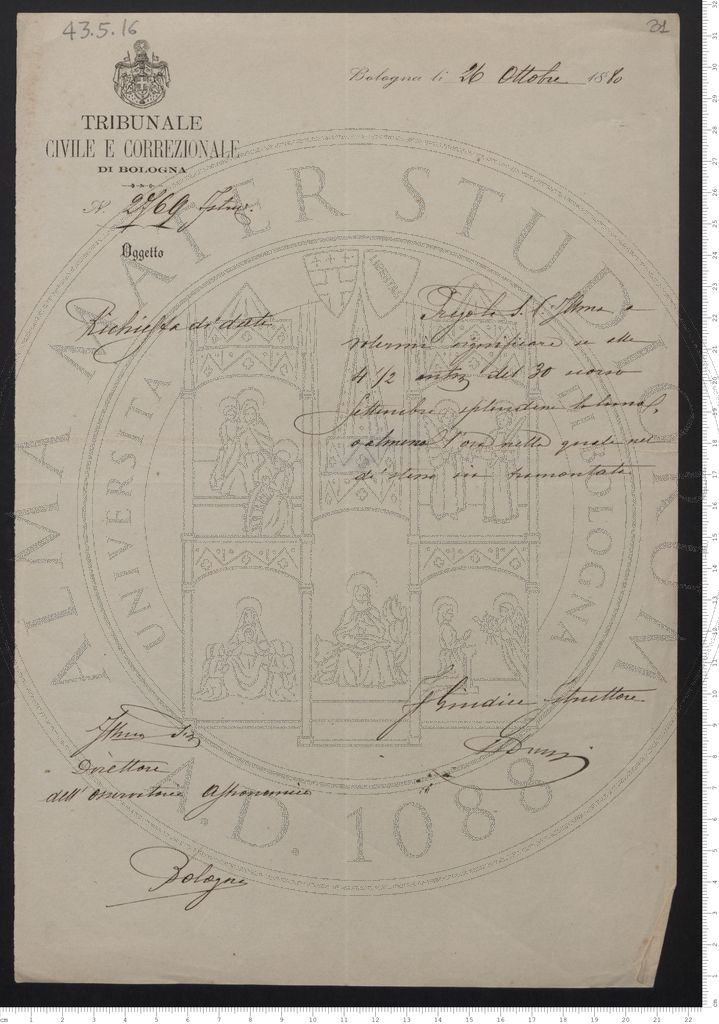 43.5.16
31
Bologna li 26 Ottobre 1880
TRIBUNALE
CIVILE E CORREZIONALE
DI BOLOGNA
N. 2769 Istruz.
Oggetto
Richiesta di dati
Prego la S. V. Illma a
volermi significare se alle
4 1/2 del 30 scorso
Settembre splendeva la luna,
o almeno l'ora nella quale nel
dì stesso sia tramontata
Il Giudice Istruttore
Illmo Sig.
Direttore
dell'Osservatorio Astronomico
Bologna
ALMA MATER STUDIORUM
UNIVERSITA DI BOLOGNA
LIBERTAS
A.D. 1088